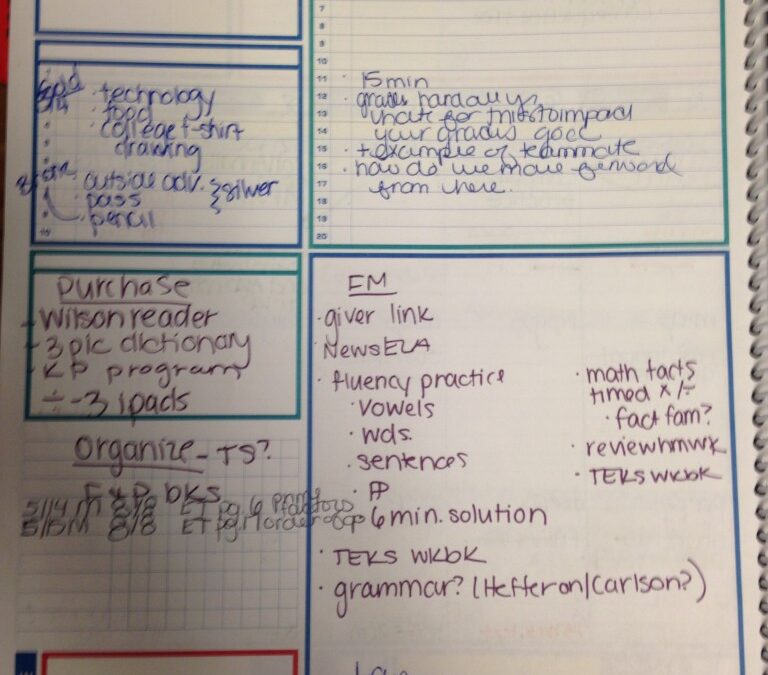 7
8
9
10
11
12
13
14
15
16
17
18
19
20
· technology
· food
· college t-shirt
drawing
· outside adv.
· pass
} silver
· pencil
· 15 min
· grades
your grades goal
· + example of teammate
· how do we move forward
from here.
Purchase
- Wilson reader
- 3 pic dictionary
- KP program
÷ - 3 ipads
Organize - TS?
F+P bks
5/14 M 8/8 ET pg. 6 prime factors
5/15 M 8/8 ET pg.
EM
· giver link
· NewsELA
· fluency practice
· vowels
· wds.
· sentences
· FP
6 min. solution
· TEKS wkbk
· grammar? (Hefferon/Carlson?)
· math facts
timed x/÷
· fact fam?
· review hmwk
· TEKS wkbk